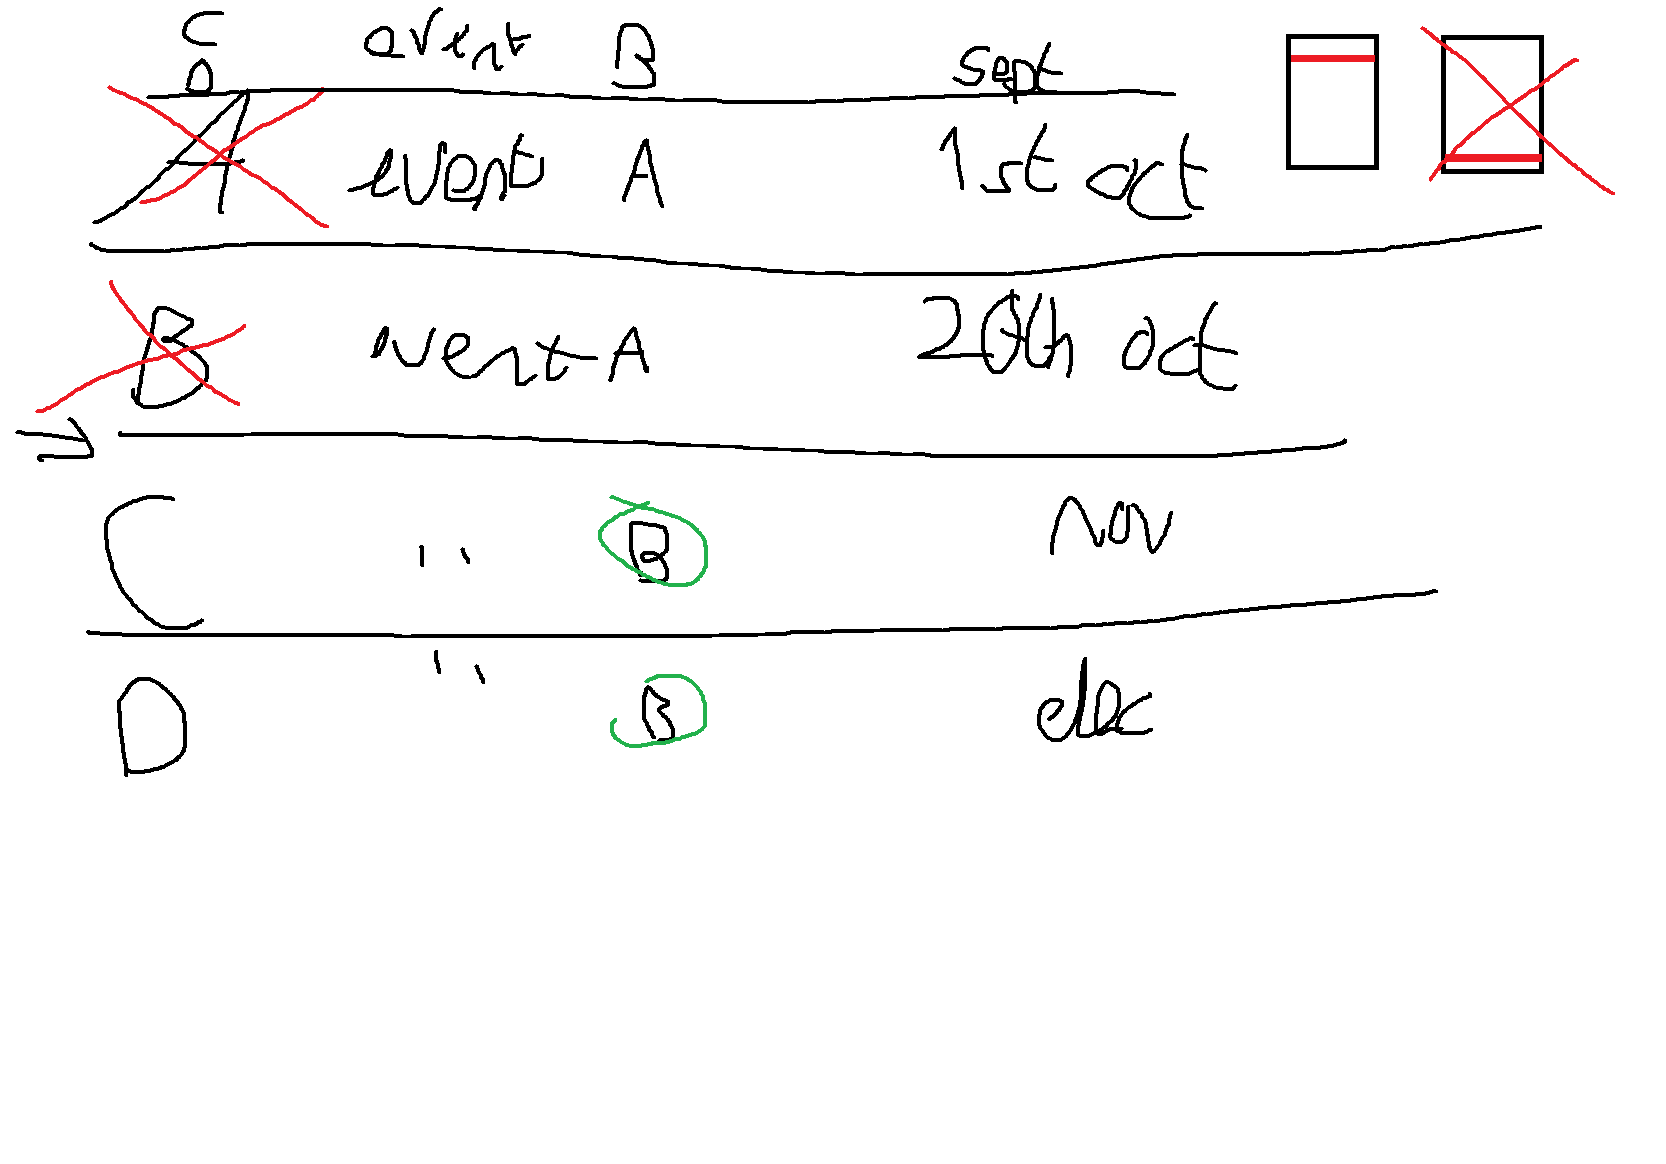 C
D event B sept
A event A 1st oct
B event A 20th oct
C '' B Nov
D '' B dec